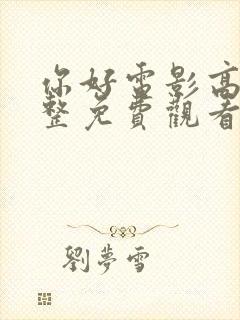 你好雷影高
整免費觀看
劉夢雪